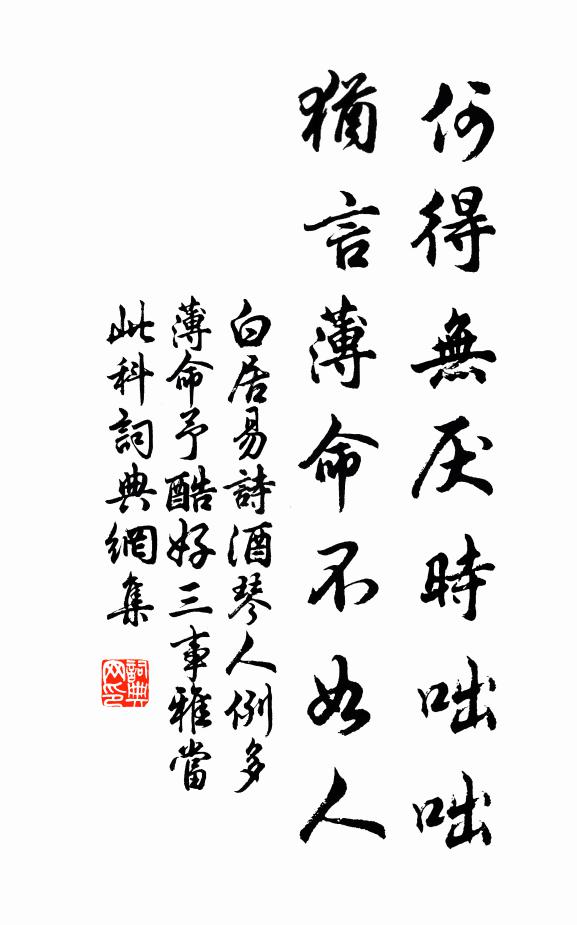 何得無厌時咄咄
猶言薄命不如人
白居易詩酒琴人例多
薄命予酷好三事雅當
此科詞典網集
詞典
网印